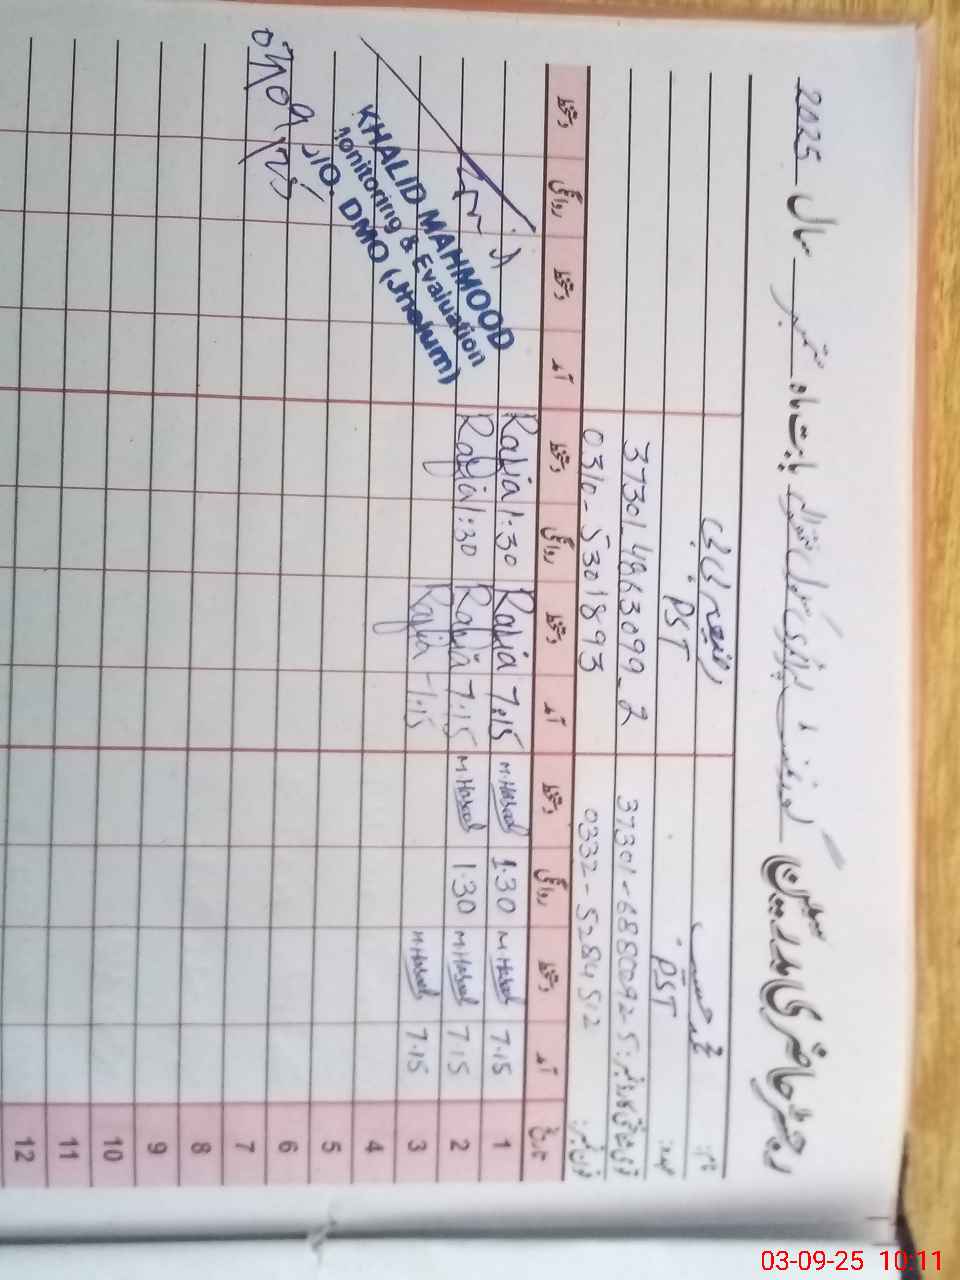 رجسٹر حاضری مدرسین گورنمنٹ پرائمری سکول بابت ماہ ستمبر سال 2025
نام: محمد حسیب رافعیہ بی بی
عہدہ: PST PST
قومی شناختی کارڈ نمبر: 37301-6880092-5 37301-4863099-2
فون نمبر: 0332-5284512 0310-5301893
تاریخ آمد دستخط روانگی دستخط آمد دستخط روانگی دستخط آمد دستخط روانگی دستخط
1 7.15 M.Haseeb 1.30 M.Haseeb 7:15 Rafia 1:30 Rafia
2 7.15 M.Haseeb 1.30 M.Haseeb 7.15 Rafia 1:30 Rafia
3 7.15 M.Haseeb 7.15 Rafia
4
5
6
7
8
9
10
11
12
KHALID MAHMOOD
Monitoring & Evaluation
O/O. DMO (Jhelum)
03/09/25
03-09-25 10:11